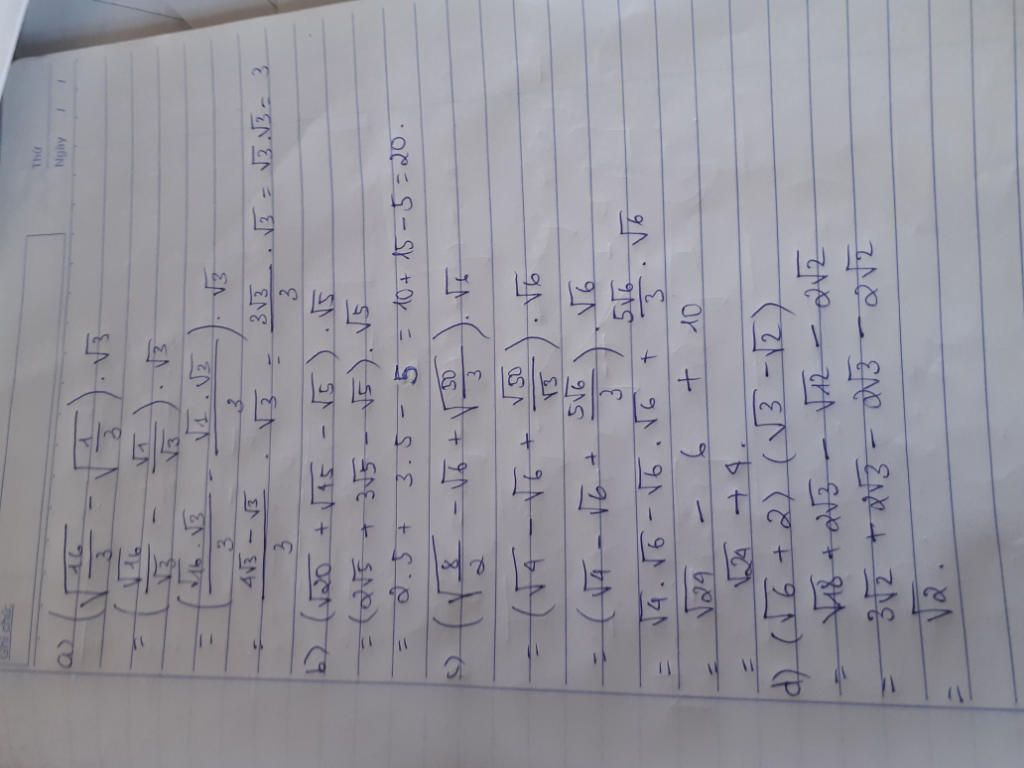 Thứ
Ngày / /
a) (√16/3 - √1/3) . √3
= (√16/√3 - √1/√3) . √3
= (√16.√3/3 - √1.√3/3) . √3
= 4√3-√3/3 . √3 = 3√3/3 . √3 = √3.√3 = 3
b) (√20 + √45 - √5) . √5
= (2√5 + 3√5 - √5) . √5
= 2.5 + 3.5 - 5 = 10 + 15 - 5 = 20.
c) (√8/2 - √6 + √50/3) . √6
= (√4 - √6 + √50/√3) . √6
= (√4 - √6 + 5√6/3) . √6
= √4.√6 - √6.√6 + 5√6/3 . √6
= √24 - 6 + 10
= √24 + 4.
d) (√6 + 2) (√3 - √2)
= √18 + 2√3 - √12 - 2√2
= 3√2 + 2√3 - 2√3 - 2√2
= √2.